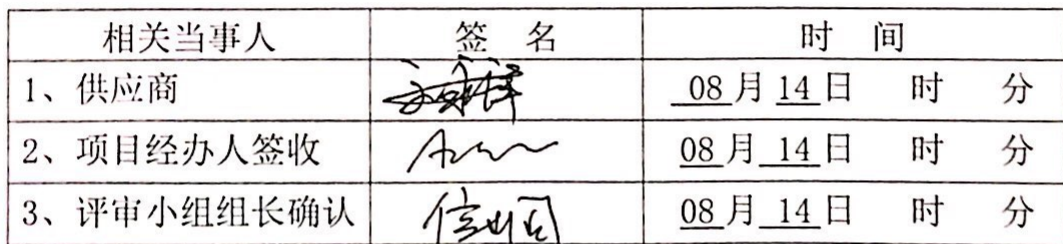 相关当事人 签 名 时 间
1、供应商 08月14日 时 分
2、项目经办人签收 08月14日 时 分
3、评审小组组长确认 08月14日 时 分